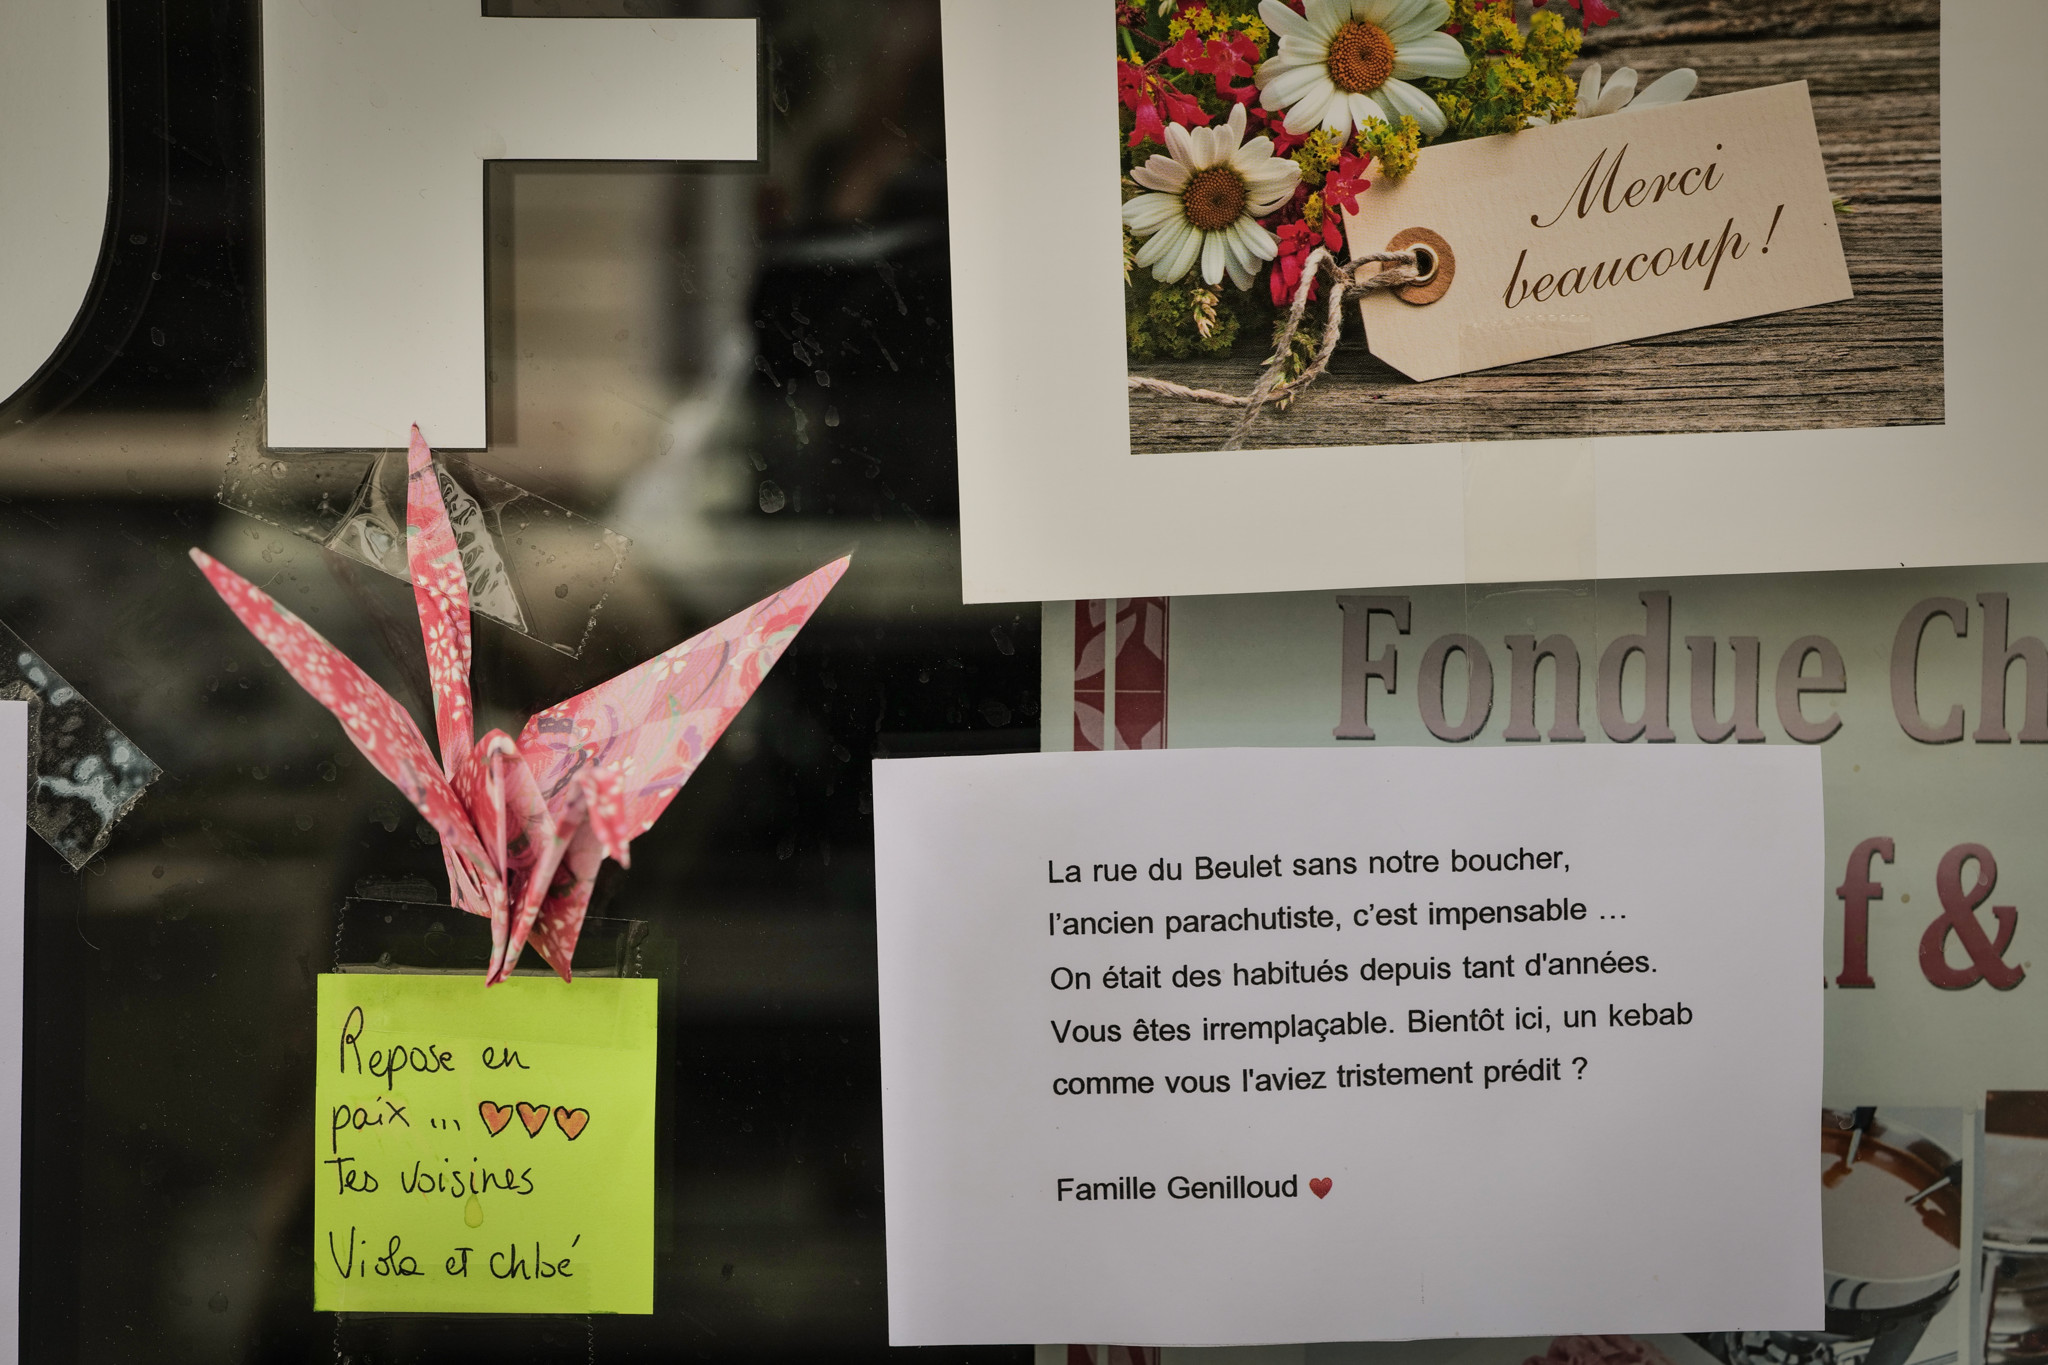 F
Merci
beaucoup !
Fondue Ch
f &
La rue du Beulet sans notre boucher,
l’ancien parachutiste, c’est impensable …
On était des habitués depuis tant d'années.
Vous êtes irremplaçable. Bientôt ici, un kebab
comme vous l'aviez tristement prédit ?
Famille Genilloud ♥
Repose en
paix ... ♥♥♥
Tes voisines
Viola et Chloé